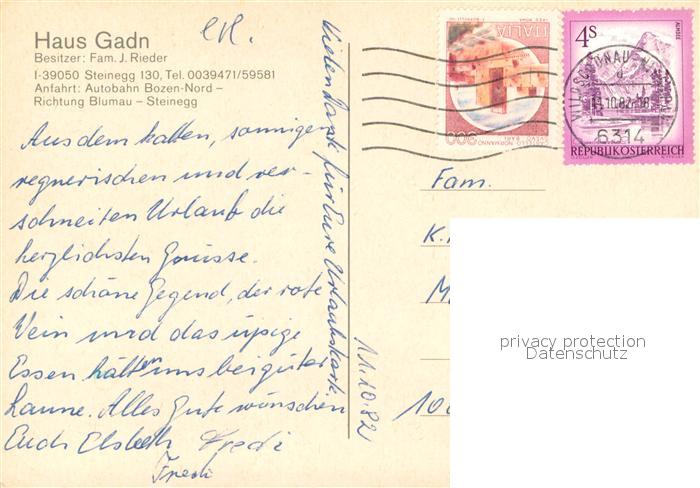 Haus Gadn
Besitzer: Fam. J. Rieder
I-39050 Steinegg 130, Tel. 0039471/59581
Anfahrt: Autobahn Bozen-Nord –
Richtung Blumau – Steinegg
Aus dem kalten, sonnigen
regnerischen und ver-
schneiten Urlaub die
herzlichsten Grüsse.
Die schöne Gegend, der rote
Wein und das üpige
Essen hatten uns bei guter
Laune. Alles Gute wünschen
Euch Elsbeth Fredi
Fredi
Vielen Dank für Eure Urlaubskarte.
11.10.82
ITALIA
300
4S
ALMSEE
REPUBLIK ÖSTERREICH
WILDSCHÖNAU-
10.82
6314
Fam.
K.
M
10
privacy protection
Datenschutz